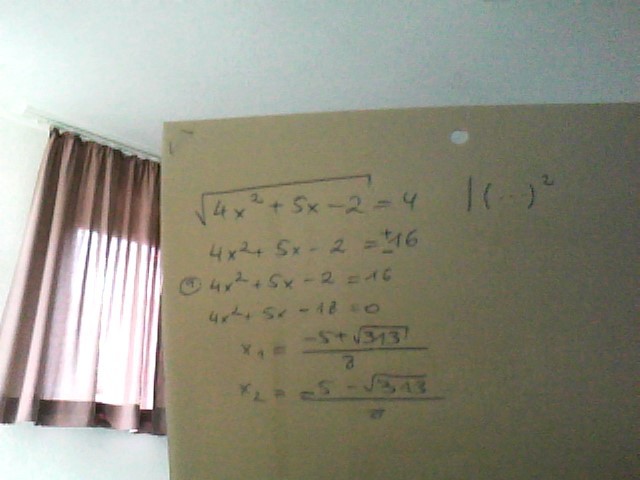 √(4x² + 5x - 2) = 4 | (...)²
4x² + 5x - 2 = ±16
① 4x² + 5x - 2 = 16
4x² + 5x - 18 = 0
x₁ = (-5 + √313) / 8
x₂ = (-5 - √313) / 8